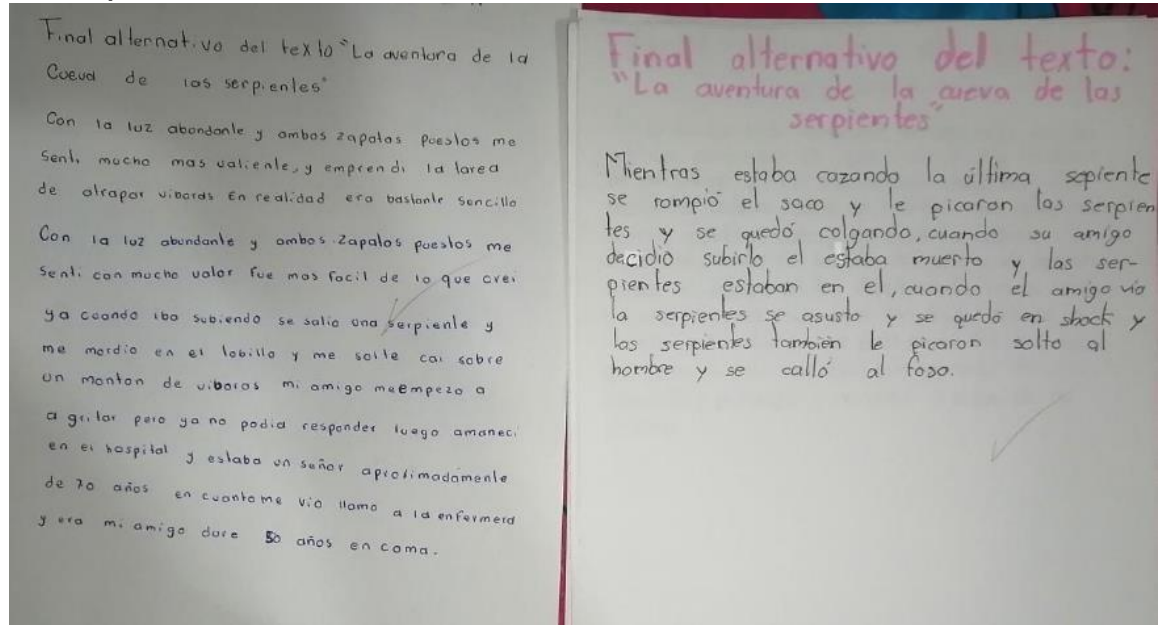 Final alternativo del texto "La aventura de la
Cueva de las serpientes"
Con la luz abondante y ambos zapatos puestos me
Senti mucho mas valiente, y emprendi la tarea
de atrapar viboras En realidad era bastante Sencillo
Con la luz abundante y ambos zapatos puestos me
Senti con mucho valor fue mas facil de lo que crei
ya coando iba subiendo se salio una serpiente y
me mordio en el tobillo y me solte cai sobre
un monton de viboras mi amigo meempezo a
a gritar pero ya no podia responder luego amaneci
en el hospital y estaba un señor aproximadamente
de 70 años en cuanto me vio llamo a la enfermera
y era mi amigo dure 50 años en coma.
Final alternativo del texto:
"La aventura de la cueva de las
serpientes"
Mientras estaba cazando la última sepiente
se rompió el saco y le picaron las serpien
tes y se quedó colgando, cuando su amigo
decidio subirlo el estaba muerto y las ser-
pientes estaban en el, cuando el amigo vio
la serpientes se asusto y se quedó en shock y
las serpientes también le picaron solto al
hombre y se calló al foso.